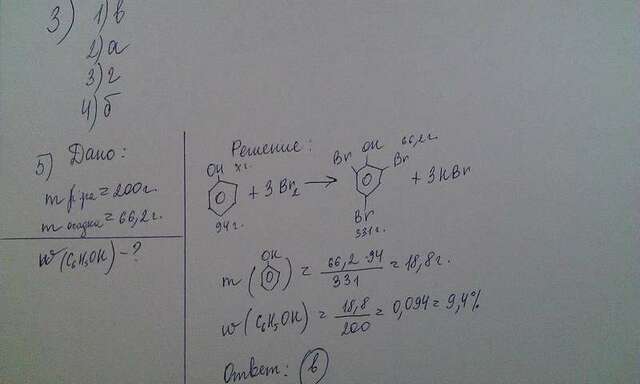 3) 1) в
2) а
3) г
4) б
5) Дано:
m р-ра = 200г.
m осадка = 66,2г.
w(C6H5OH) - ?
Решение:
OH xг. OH 66,2г.
Br Br
+ 3Br2 → + 3HBr
Br
94г. 331г.
OH
m ( ) = 66,2 · 94 / 331 = 18,8г.
w (C6H5OH) = 18,8 / 200 = 0,094 = 9,4%
Ответ: в